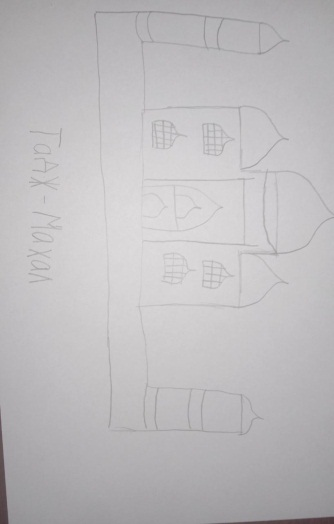 Тадж - Махал